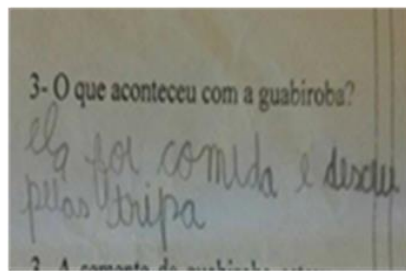 3- O que aconteceu com a guabiroba?
ela foi comida e desceu
pelas tripa